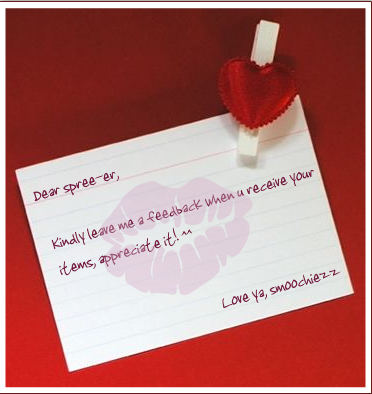 Dear spree-er,
Kindly leave me a feedback when u receive your
items, appreciate it! ^^
Love ya, smoochiezz